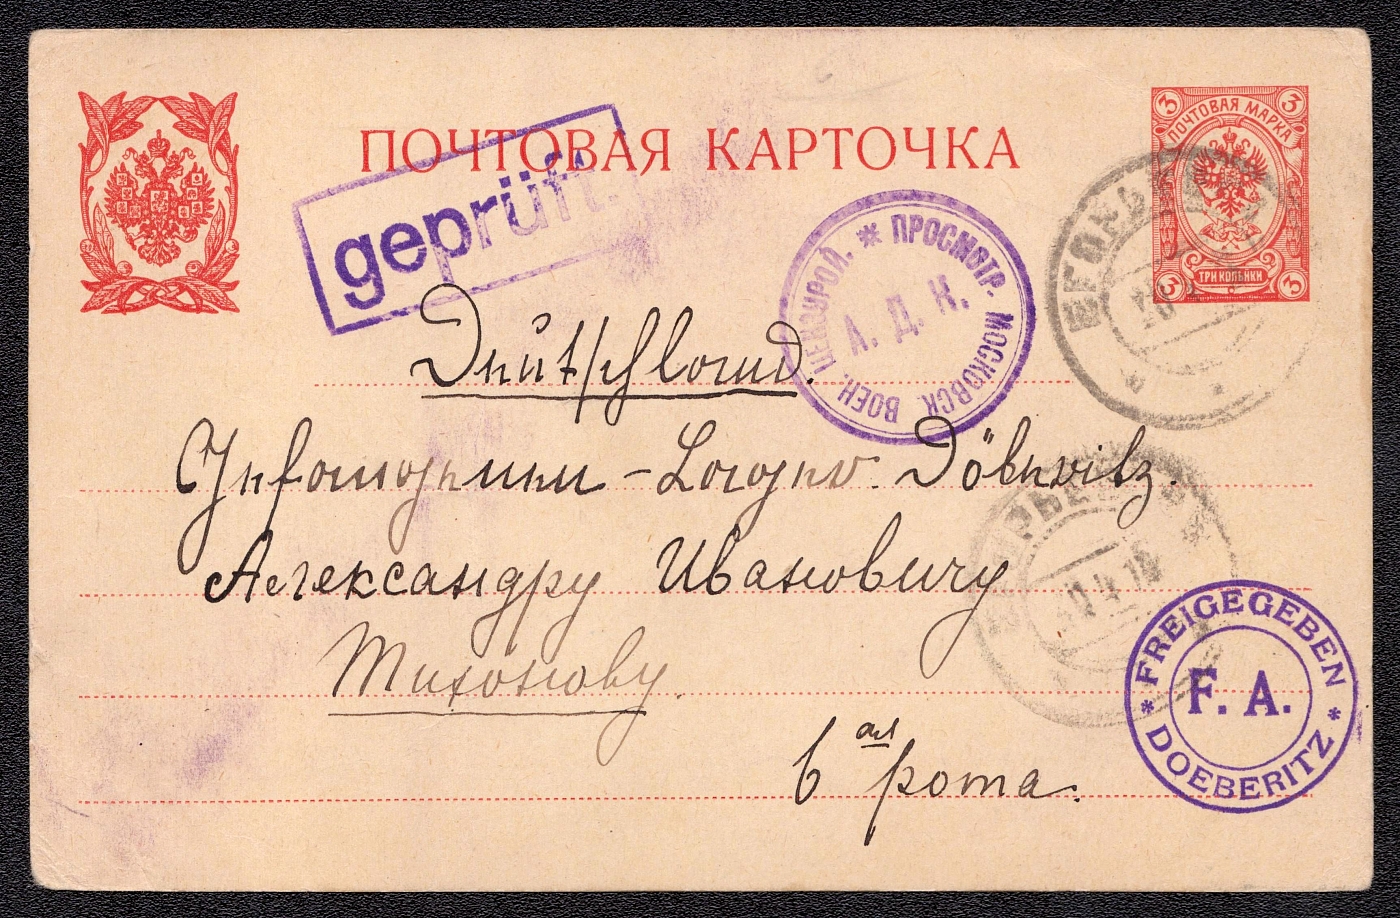 ПОЧТОВАЯ КАРТОЧКА
3 3
ПОЧТОВАЯ МАРКА
ТРИ КОПѢЙКИ
3 3
geprüft.
ПРОСМОТР. МОСКОВСК. ВОЕН. ЦЕНЗУРОЙ.
А. Д. Н.
Deutschland.
Döberitz.
Александру Ивановичу
Тихонову.
6 ая рота.
FREIGEGEBEN
F. A.
DOEBERITZ